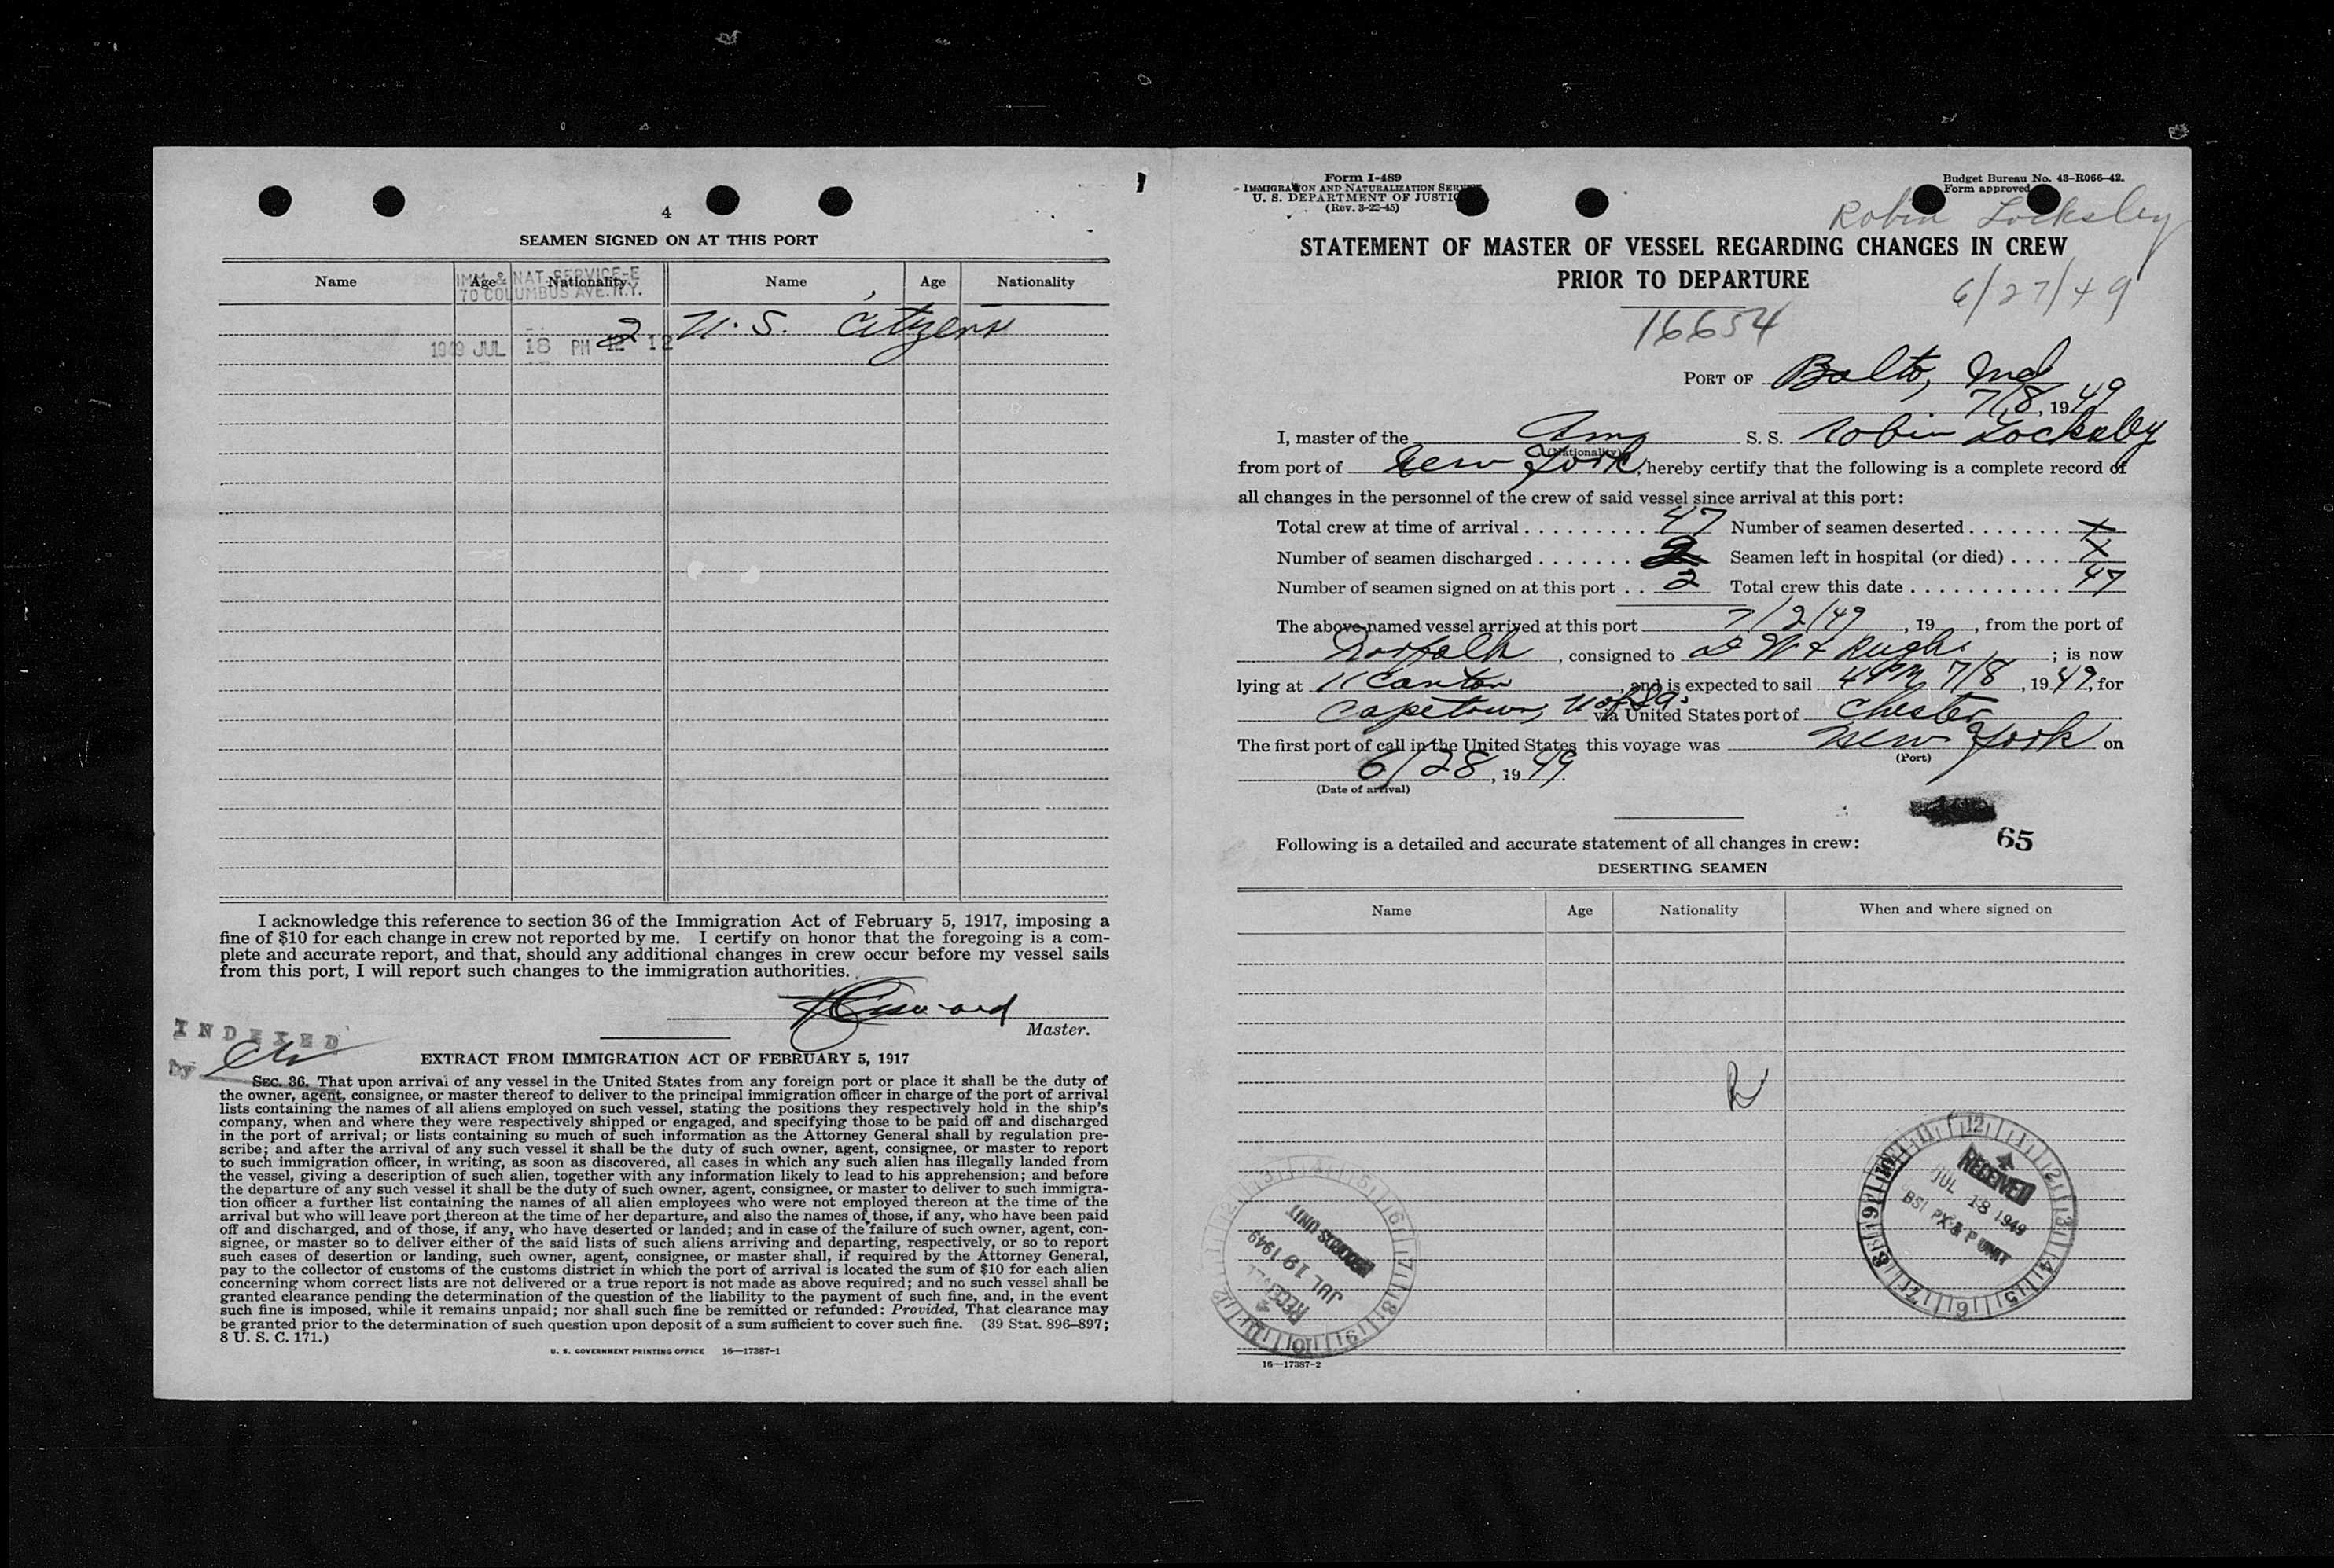 4
SEAMEN SIGNED ON AT THIS PORT
Name Age Nationality Name Age Nationality
IMM & NAT. SERVICE-E
70 COLUMBUS AVE. N.Y.
2 U.S. Citizens
1949 JUL 18 PM 12 12
I acknowledge this reference to section 36 of the Immigration Act of February 5, 1917, imposing a
fine of $10 for each change in crew not reported by me. I certify on honor that the foregoing is a com-
plete and accurate report, and that, should any additional changes in crew occur before my vessel sails
from this port, I will report such changes to the immigration authorities.
Master.
INDEXED
by
EXTRACT FROM IMMIGRATION ACT OF FEBRUARY 5, 1917
SEC. 36. That upon arrival of any vessel in the United States from any foreign port or place it shall be the duty of
the owner, agent, consignee, or master thereof to deliver to the principal immigration officer in charge of the port of arrival
lists containing the names of all aliens employed on such vessel, stating the positions they respectively hold in the ship's
company, when and where they were respectively shipped or engaged, and specifying those to be paid off and discharged
in the port of arrival; or lists containing so much of such information as the Attorney General shall by regulation pre-
scribe; and after the arrival of any such vessel it shall be the duty of such owner, agent, consignee, or master to report
to such immigration officer, in writing, as soon as discovered, all cases in which any such alien has illegally landed from
the vessel, giving a description of such alien, together with any information likely to lead to his apprehension; and before
the departure of any such vessel it shall be the duty of such owner, agent, consignee, or master to deliver to such immigra-
tion officer a further list containing the names of all alien employees who were not employed thereon at the time of the
arrival but who will leave port thereon at the time of her departure, and also the names of those, if any, who have been paid
off and discharged, and of those, if any, who have deserted or landed; and in case of the failure of such owner, agent, con-
signee, or master so to deliver either of the said lists of such aliens arriving and departing, respectively, or so to report
such cases of desertion or landing, such owner, agent, consignee, or master shall, if required by the Attorney General,
pay to the collector of customs of the customs district in which the port of arrival is located the sum of $10 for each alien
concerning whom correct lists are not delivered or a true report is not made as above required; and no such vessel shall be
granted clearance pending the determination of the question of the liability to the payment of such fine, and, in the event
such fine is imposed, while it remains unpaid; nor shall such fine be remitted or refunded: Provided, That clearance may
be granted prior to the determination of such question upon deposit of a sum sufficient to cover such fine. (39 Stat. 896-897;
8 U. S. C. 171.)
U. S. GOVERNMENT PRINTING OFFICE 16—17387-1
Form I-489
IMMIGRATION AND NATURALIZATION SERVICE
U. S. DEPARTMENT OF JUSTICE
(Rev. 3-22-45)
Budget Bureau No. 43-R066-42.
Form approved
Robin Locksley
STATEMENT OF MASTER OF VESSEL REGARDING CHANGES IN CREW
PRIOR TO DEPARTURE
6/27/49
16654
PORT OF Balto, Md
7/8, 1949
I, master of the Am S. S. Robin Locksley
(Nationality)
from port of New York, hereby certify that the following is a complete record of
all changes in the personnel of the crew of said vessel since arrival at this port:
Total crew at time of arrival 47 Number of seamen deserted x
Number of seamen discharged 2 Seamen left in hospital (or died) x
Number of seamen signed on at this port 2 Total crew this date 47
The above-named vessel arrived at this port 7/2/49, 19 , from the port of
Norfolk, consigned to ; is now
lying at 11 Canton, and is expected to sail 4 PM 7/8, 1949, for
Capetown, U of SA. via United States port of Chester
The first port of call in the United States this voyage was New York on
(Port)
6/28, 1949.
(Date of arrival)
65
Following is a detailed and accurate statement of all changes in crew:
DESERTING SEAMEN
Name Age Nationality When and where signed on
RECEIVED
JUL 18 1949
BSI PX & P UNIT
RECEIVED
JUL 19 1949
RECORDS UNIT
16—17387-2